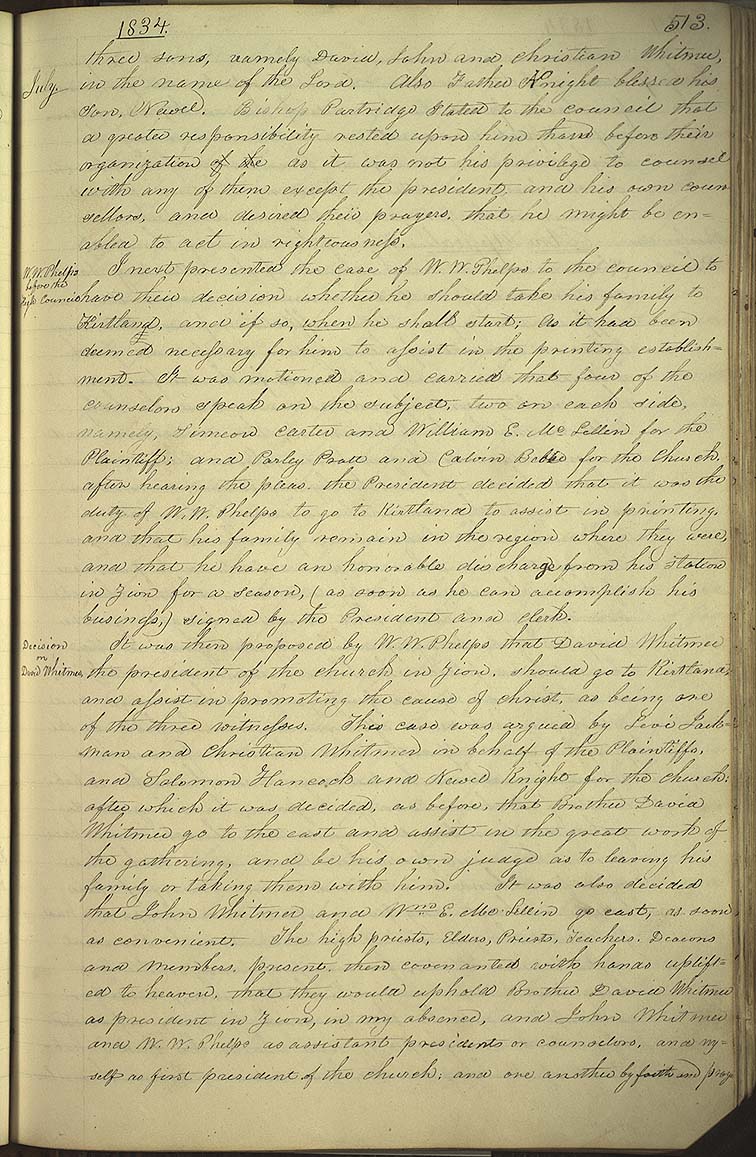 1834.
513.
three sons, namely David, John and Christian Whitmer,
July.
in the name of the Lord. Also Father Knight blessed his
Son, Newel. Bishop Partridge stated to the council that
a greater responsibility rested upon him than before their
organization of the as it was not his privilege to counsel
with any of them except the president, and his own coun
sellors, and desired their prayers, that he might be en=
abled to act in righteousness.
W. W. Phelps
before the
High Council
I next presented the case of W. W. Phelps to the council to
have their decision whether he should take his family to
Kirtland, and if so, when he shall start; as it had been
deemed necessary for him to assist in the printing establish=
ment. It was motioned and carried that four of the
counselors speak on the subject, two on each side,
namely, Simeon Carter and William E. Mc Lellin for the
Plaintiff; and Parley Pratt and Calvin Bebee for the Church.
after hearing the pleas, the President decided that it was the
duty of W. W. Phelps to go to Kirtland to assist in printing,
and that his family remain in the region where they were,
and that he have an honorable discharge from his station
in Zion for a season, (as soon as he can accomplish his
business,) signed by the President and clerk.
Decision
on
David Whitmer,
It was then proposed by W. W. Phelps that David Whitmer
the president of the church in Zion, should go to Kirtland,
and assist in promoting the cause of Christ, as being one
of the three witnesses. This case was argued by Levi Jack=
man and Christian Whitmer in behalf of the Plaintiffs,
and Solomon Hancock and Newel Knight for the church:
after which it was decided, as before, that Brother David
Whitmer go to the east and assist in the great work of
the gathering, and be his own judge as to leaving his
family or taking them with him. It was also decided
that John Whitmer and Wm. E. Mc Lellin go east, as soon
as convenient. The high priests, Elders, Priests, Teachers, Deacons
and members, present, then covenanted with hands uplift=
ed to heaven, that they would uphold Brother David Whitmer
as president in Zion, in my absence, and John Whitmer
and W. W. Phelps as assistant presidents or counselors, and my=
self as first president of the church; and one another by faith and